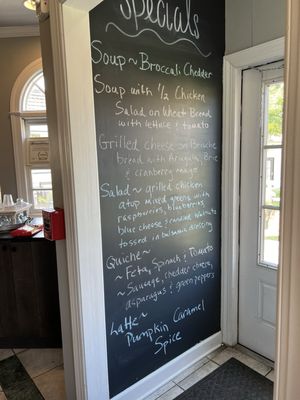 Specials
Soup ~ Broccoli Cheddar
Soup with 1/2 Chicken
Salad on Wheat Bread
with lettuce & tomato
Grilled cheese on Brioche
bread with Arugula, Brie
& cranberry mayo
Salad ~ grilled chicken
atop mixed greens with
raspberries, blueberries
blue cheese & candied walnuts
tossed in balsamic dressing
Quiche ~
~ Feta, Spinach & Tomato
~ Sausage, cheddar cheese,
asparagus & green peppers
Latte ~
Pumpkin Caramel
Spice